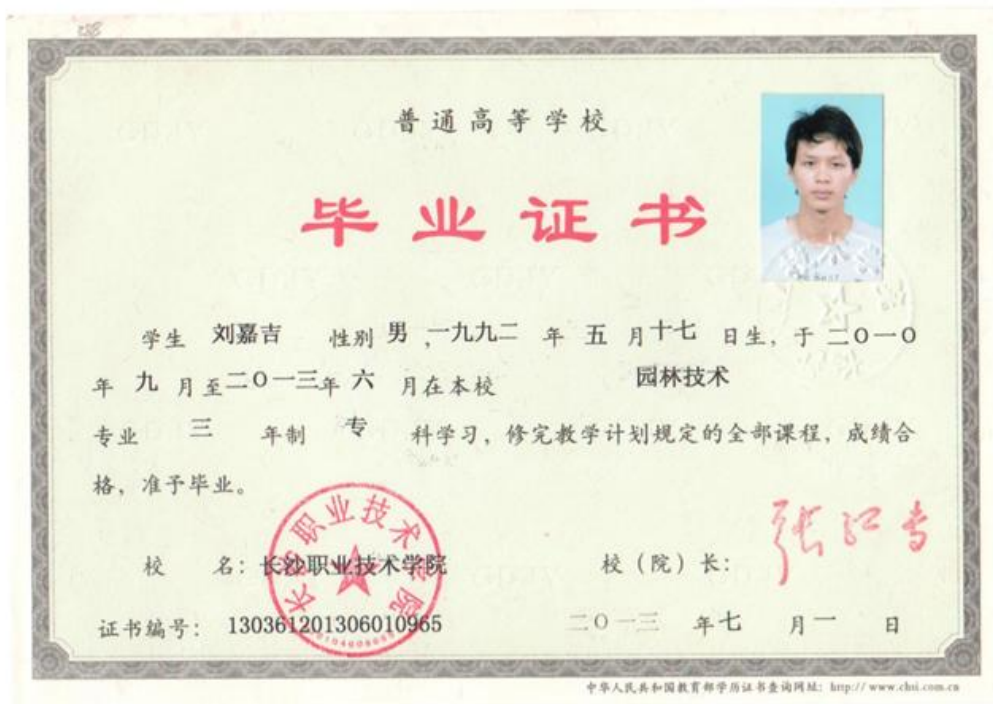 普通高等学校
毕业证书
学生 刘嘉吉 性别 男 ,一九九二 年 五 月 十七 日生, 于 二〇一〇
年 九 月至二〇一三年 六 月在本校 园林技术
专业 三 年制 专 科学习, 修完教学计划规定的全部课程, 成绩合
格, 准予毕业。
校 名: 长沙职业技术学院
校（院）长: 张红专
长沙职业技术学院
证书编号: 130361201306010965
二〇一三 年七 月一 日
中华人民共和国教育部学历证书查询网址: http://www.chsi.com.cn